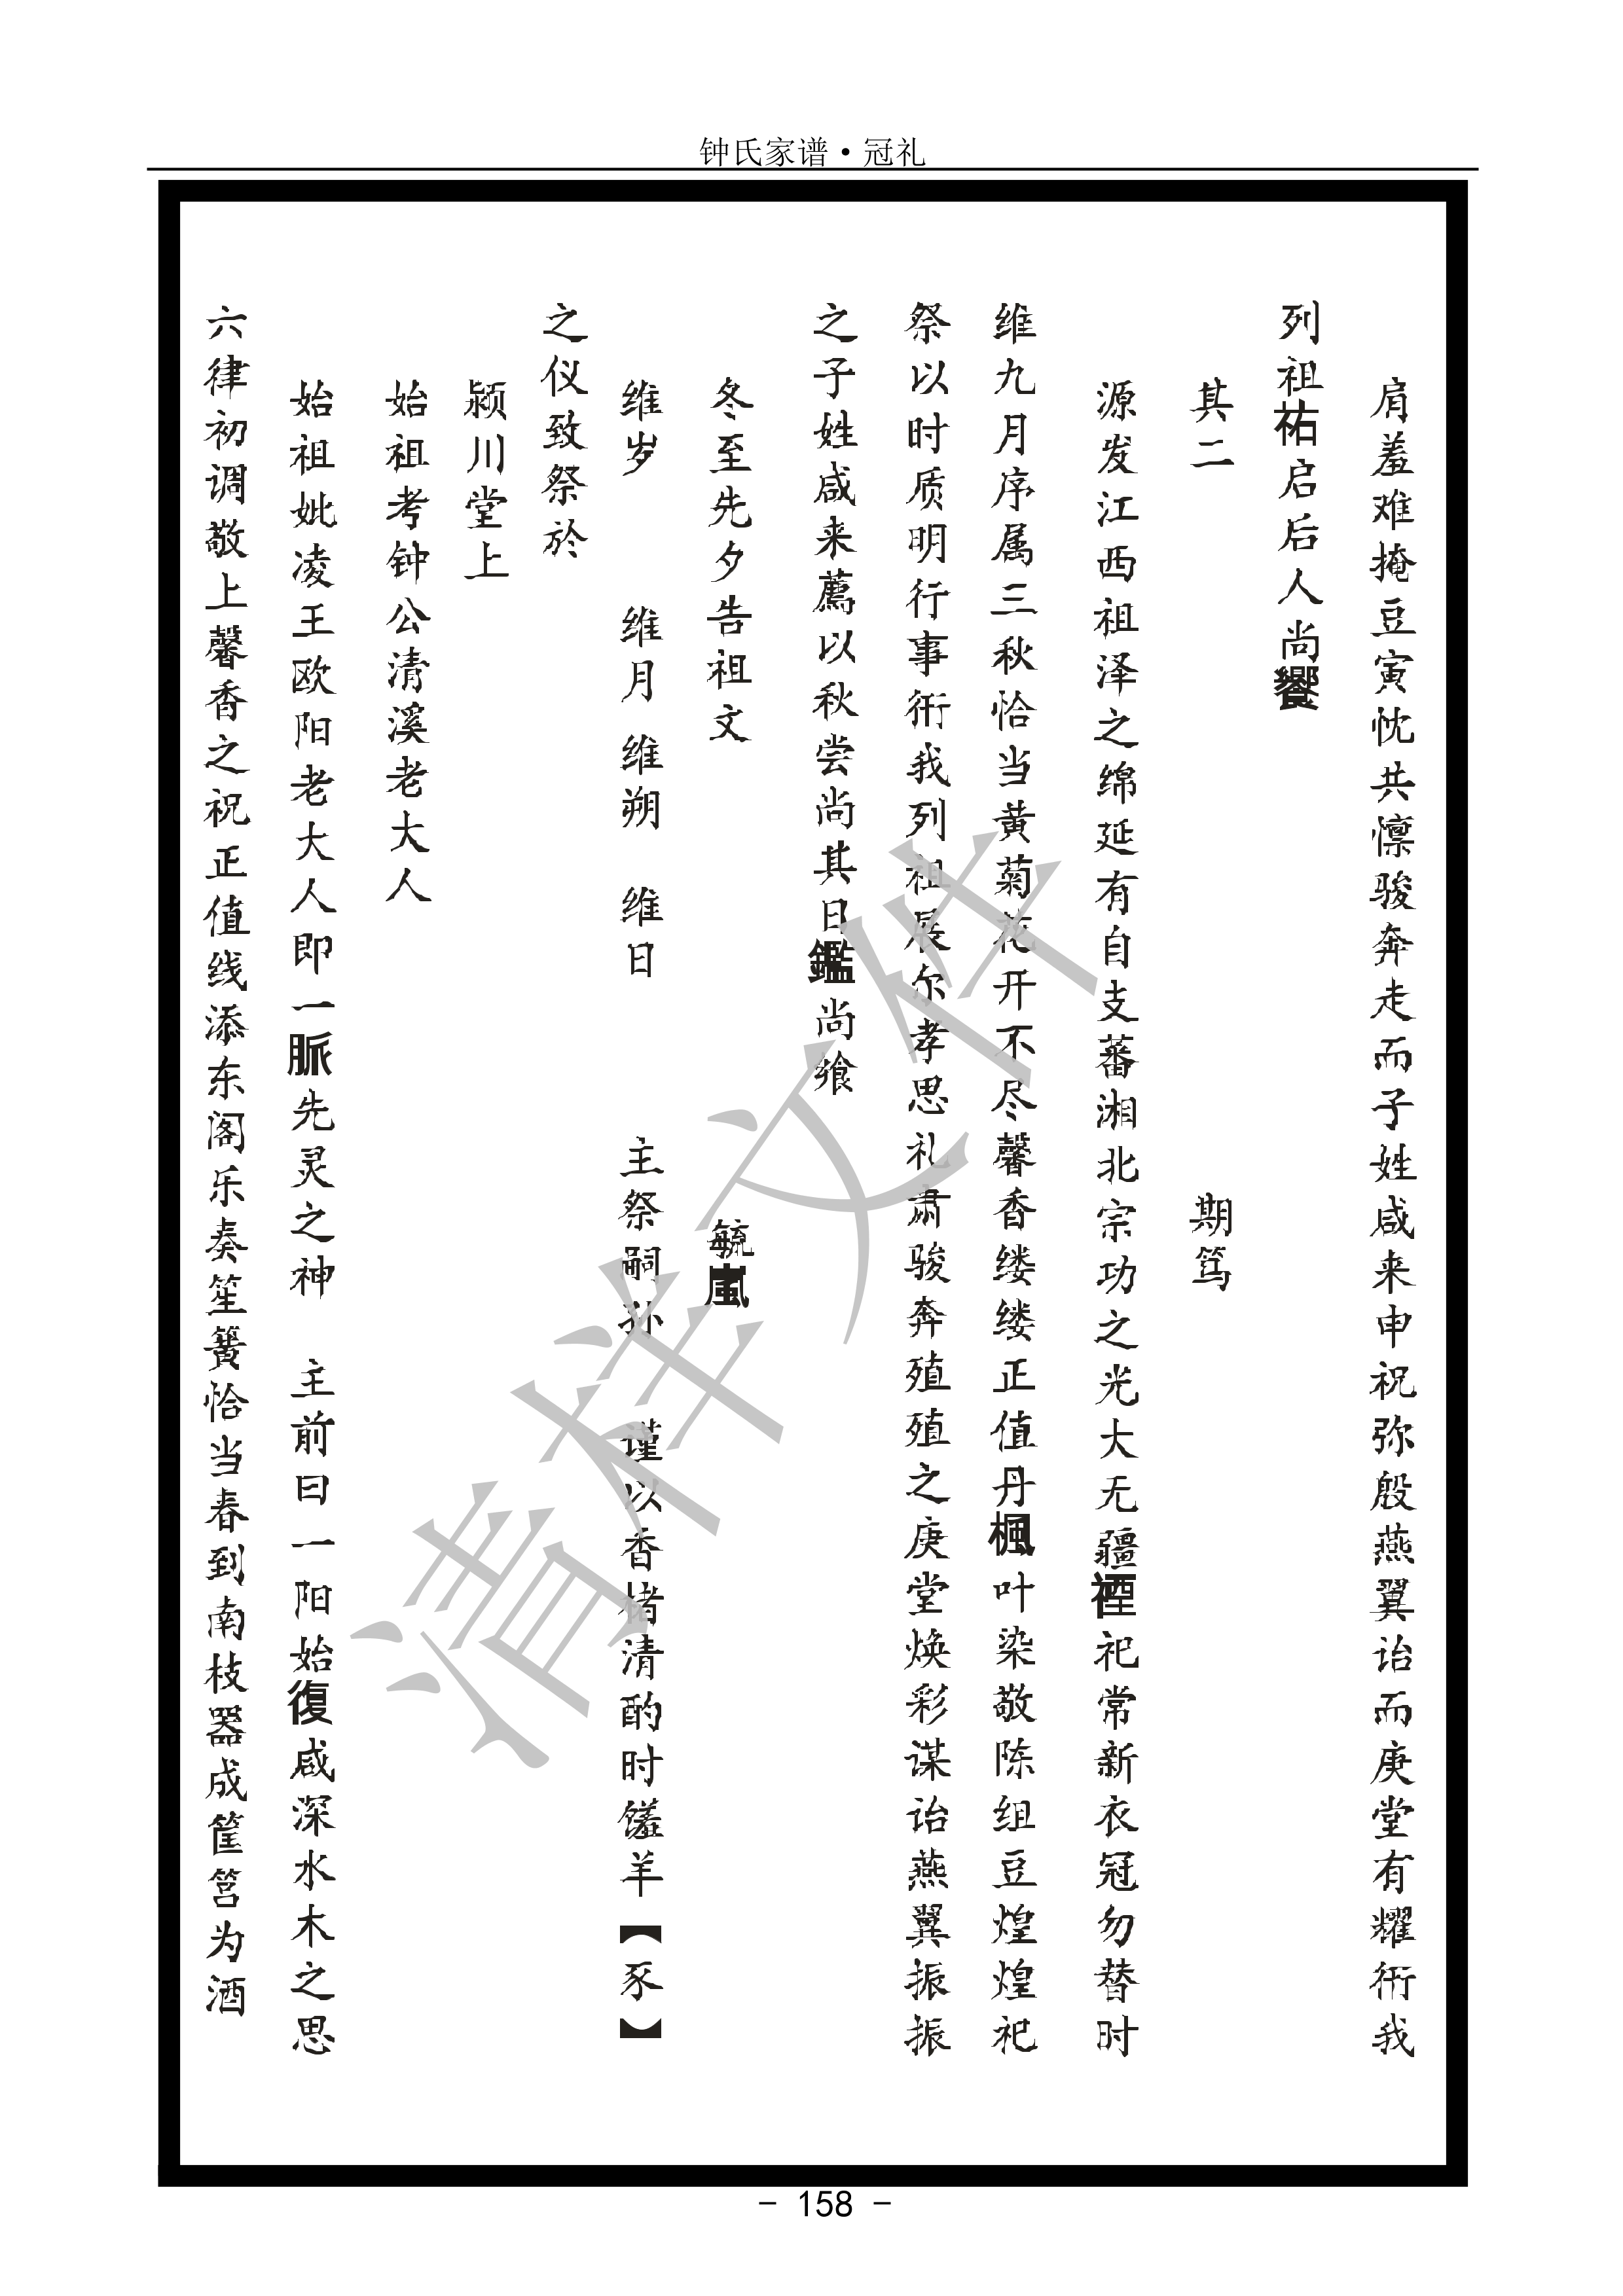 钟氏家谱·冠礼
肩羞难掩豆寅忱共懔骏奔走而子姓咸来申祝弥殷燕翼诒而庚堂有耀衎我
列祖祐启后人尚饗
其二 期笃
源发江西祖泽之绵延有自支蕃湘北宗功之光大无疆禋祀常新衣冠勿替时
维九月序属三秋恰当黄菊花开不尽馨香缕缕正值丹楓叶染敬陈组豆煌煌祀
祭以时质明行事衎我列祖展尔孝思礼肃骏奔殖殖之庚堂焕彩谋诒燕翼振振
之子姓咸来薦以秋尝尚其日鑑尚飨
冬至先夕告祖文 毓嵐
维岁 维月 维朔 维日 主祭嗣孙 谨以香楮清酌时馐羊【豕】
之仪致祭於
颍川堂上
始祖考钟公清溪老大人
始祖妣凌王欧阳老大人即一脈先灵之神 主前曰一阳始復咸深水木之思
六律初调敬上馨香之祝正值线添东阁乐奏笙簧恰当春到南枝器成筐筥为酒
- 158 -
清样文件